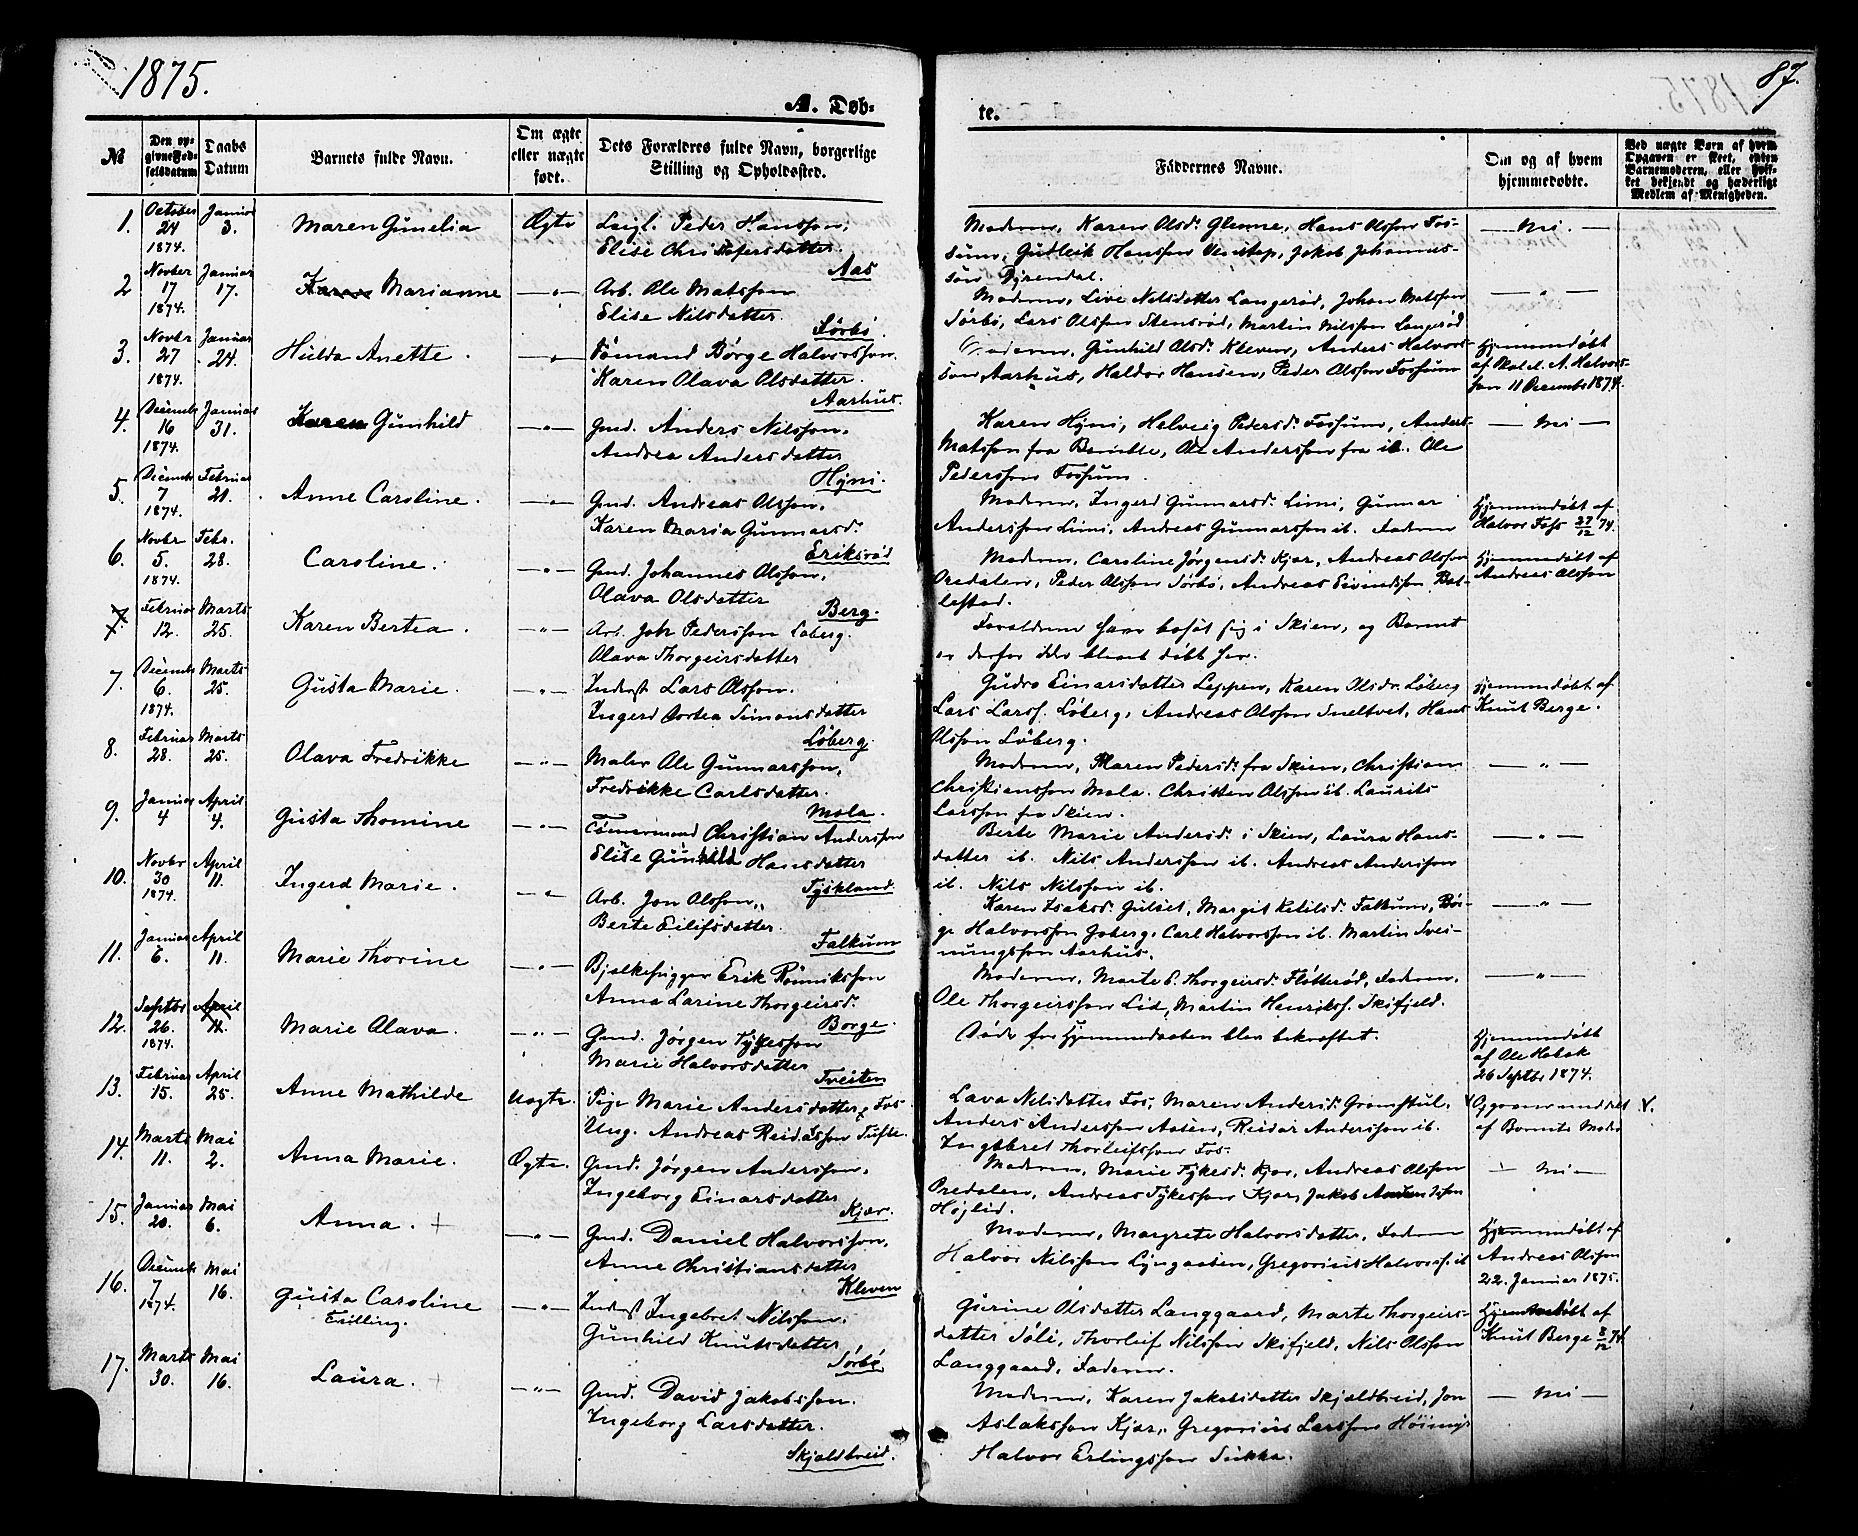 1875.
87.
A. Døb-
te.
№
Den op-
givne Fød-
selsdatum
Daabs
Datum
Barnets fulde Navn.
Om ægte
eller uægte
født.
Dets Forældres fulde Navn, borgerlige
Stilling og Opholdssted.
Faddernes Navne.
Om og af hvem
hjemmedøbt.
Ved uægte Børn af hvem
Opgaven er skeet, enten
Barnemoderen, eller hvil-
ket bekjendt og hæderligt
Medlem af Menigheden.
1. October 24 1874. Januar 3. Maren Gunelia Ægte
Peder Hansson,
Elise Christofersdatter
Aas
Moderen, Karen Olsd. Glenne, Hans Olsson Fos-
sum, Gudleik Hansson Venstøp, Jakob Johannes-
søn
— Nei. —
2 Novber 17 1874. Januar 17. Karen Marianne — " —
Arb. Ole Matsson
Elise Nilsdatter.
Sørbø.
Moderen, Live Nilsdatter Langerød, Johan Matsson
Sørbø, Lars Olsson Stensrød, Martin Nilsson Langerød
— " —
3. Novbr 27 1874. Januar 24. Hulda Anette. — " —
Sømand Børge Halvorsson.
Karen Olava Olsdatter.
Aarhus.
Moderen, Gunhild Olsd. Kleven, Anders Halvors-
son Aarhus, Haldor Hansen, Peder Olsson Fossum
Hjemmedøbt
af Skolel. A. Halvors-
son 11 Decembr 1874.
4. Decembr 16 1874. Januar 31. Karen Gunhild — " —
Gmd. Anders Nilsson.
Andrea Andersdatter
Hyni.
Karen Hyni, Helvig Pedersd. Fossum, Anders
Matsson fra Bamble, Ole Andersson fra ib. Ole
Pedersson Fossum.
— Nei —
5. Decembr 7 1874. Februar 21. Anne Caroline. — " —
Gmd. Andreas Olsson.
Karen Maria Gunnarsd.
Eriksrød
Moderen, Ingerd Gunnarsd. Limi, Gunnar
Andersson Limi, Andreas Gunnarsson ib. Faderen
Hjemmedøbt af
Halvor Foss 27/12 74.
6. Novbr 5. 1874. Febr. 28. Caroline. — " —
Gmd. Johannes Olsson,
Olava Olsdatter
Berg.
Moderen, Caroline Jørgensd. Kjær, Andreas Olsson
Øredalen, Peder Olsson Sørbø, Andreas Eivindsson Bal-
lestad.
Hjemmedøbt af
Andreas Olsson
7. Februar 12. Marts 25. Karen Bertea. — " —
Arb. Joh. Pedersson Løberg.
Olava Thorgeirsdatter
Forældrene have bosat sig i Skien, og Barnet
er derfor ikke blevet døbt her.
7. Decembr 6. 1874. Marts 25. Gusta Marie. — " —
Inderst Lars Olsson.
Ingerd Dortea Simonsdatter
Løberg.
Gudro Einarsdatter Leppen, Karen Olsdr. Løberg
Lars Larss. Løberg, Andreas Olsson Sneltvet, Hans
Olsson Løberg.
Hjemmedøbt af
Knut Berge.
8. Februar 28. Marts 25. Olava Fredrikke — " —
Maler Ole Gunnarsson,
Fredrikke Carlsdatter.
Mæla.
Moderen, Maren Pedersd. fra Skien, Christian
Christiansson Mæla. Christen Olsson ib. Laurits
Larsson fra Skien.
— " —
9. Januar 4 April 4. Gusta Thomine — " —
Tømmermand Christian Andersson
Elise Gunhild Hansdatter
Tyskland.
Berte Marie Andersd. i Skien, Laura Hans-
datter ib. Nils Andersson ib. Andreas Andersson
ib. Nils Nilsson ib.
— " —
10. Novbr 30 1874. April 11. Ingerd Marie. — " —
Arb. Jon Olsson,
Berte Eilifsdatter.
Falkum
Karen Isaksd. Gulset, Margit Ketilsd. Falkum, Bør-
ge Halvorsson Goberg, Carl Halvorsson ib. Martin Svei-
nungsson Aarhus.
— " —
11. Januar 6. April 11. Marie Thorine — " —
Bjelkehugger Erik Rønniksson
Anna Larine Thorgeirsd.
Borge.
Moderen, Marte E. Thorgeirsd. Fløtterød, Faderen,
Ole Thorgeirsson Lid, Martin Henrikss. Skifjeld.
— " —
12. Septbr 26. 1874. April 11. Marie Olava. — " —
Gmd. Jørgen Tykesson
Marie Halvorsdatter
Tveiten
Døde før Hjemmedaaben blev bekræftet.
Hjemmedøbt
af Ole Hobæk
26 Septbr 1874.
13. Februar 15. April 25. Anne Mathilde Uægte.
Pige Marie Andersdatter Fos
Ung. Andreas Reidarsson Tufte.
Lava Nilsdatter Fos, Maren Andersd. Gromstul,
Anders Andersson Aasen, Reidar Andersson ib.
Ingebret Thorleifsson Fos.
Opgaven meddelt
af Barnets Moder
14. Marts 11. Mai 2. Anna Marie. Ægte.
Gmd. Jørgen Andersson.
Ingeborg Einarsdatter
Kjær.
Moderen, Marie Tykesd. Kjær, Andreas Olsson
Øredalen, Andreas Tykesson Kjær, Jakob Andersson
Høglid.
— Nei —
15. Januar 20. Mai 6. Anna. — " —
Gmd. Daniel Halvorsson.
Anne Christiansdatter
Kleven
Moderen, Margrete Halvorsdatter, Faderen
Halvor Nilsson Lyngaasen, Gregorius Halvorss. ib
Hjemmedøbt af
Andreas Olsson
22. Januar 1875.
16. Decembr 7 1874. Mai 16. Gusta Caroline — " —
Trilling.
Inderst Ingebret Nilsson.
Gunhild Knutsdatter
Sørbø
Gurine Olsdatter Langgaard, Marte Thorgeirs-
datter Søli, Thorleif Nilsson Skifjeld, Nils Olsson
Langgaard, Faderen.
Hjemmedøbt af
Knut Berge 8/12 74.
17. Marts 30. Mai 16. Laura. — " —
Gmd. David Jakobsson.
Ingeborg Larsdatter.
Skjeldbreid.
Moderen, Karen Jakobsdatter Skjeldbreid, Jon
Aslaksson Kjær, Gregorius Larsson
Halvor Erlingsson
— Nei —